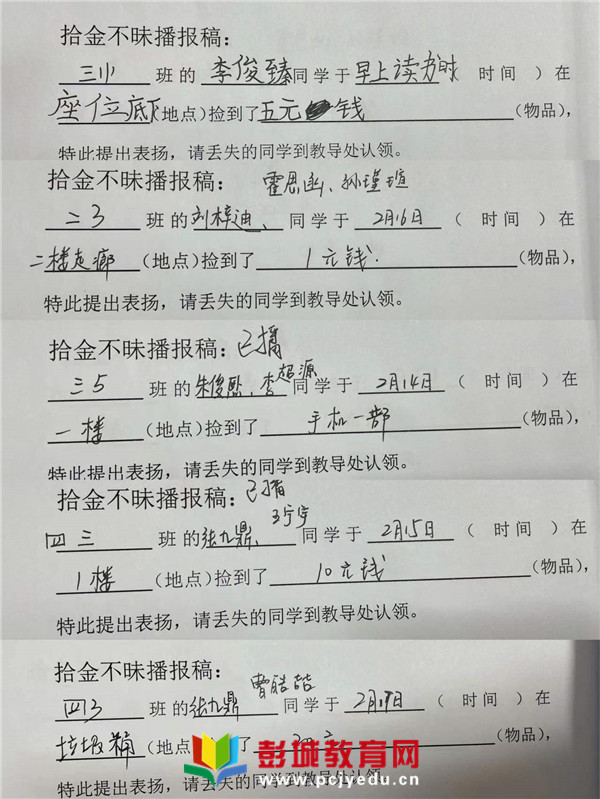 拾金不昧播报稿：
三小 班的 李俊臻 同学于 早上读书时 时间 ）在
座位底下（地点）捡到了 五元 钱 （物品），
特此提出表扬，请丢失的同学到教导处认领。
拾金不昧播报稿： 霍思函、孙瑾瑄
二3 班的 刘梓迪、 同学于 2月16日 （ 时间 ）在
二楼走廊 （地点）捡到了 1元钱. （物品），
特此提出表扬，请丢失的同学到教导处认领。
拾金不昧播报稿：已播
三5 班的 朱俊熙、李超源 同学于 2月14日 （ 时间 ）在
一楼 （地点）捡到了 手机一部 （物品），
特此提出表扬，请丢失的同学到教导处认领。
拾金不昧播报稿：已播
四三 班的 张九鼎、王宁宇 同学于 2月15日 （ 时间 ）在
1楼 （地点）捡到了 10元钱 （物品），
特此提出表扬，请丢失的同学到教导处认领。
拾金不昧播报稿： 曹皓喆
四3 班的 张九鼎 同学于 2月 日 （ 时间 ）在
垃圾桶 （地点 了 （物品），
特此提出表扬，请丢失的同学到教导处认领
彭城教育网
www.pcjyedu.cn